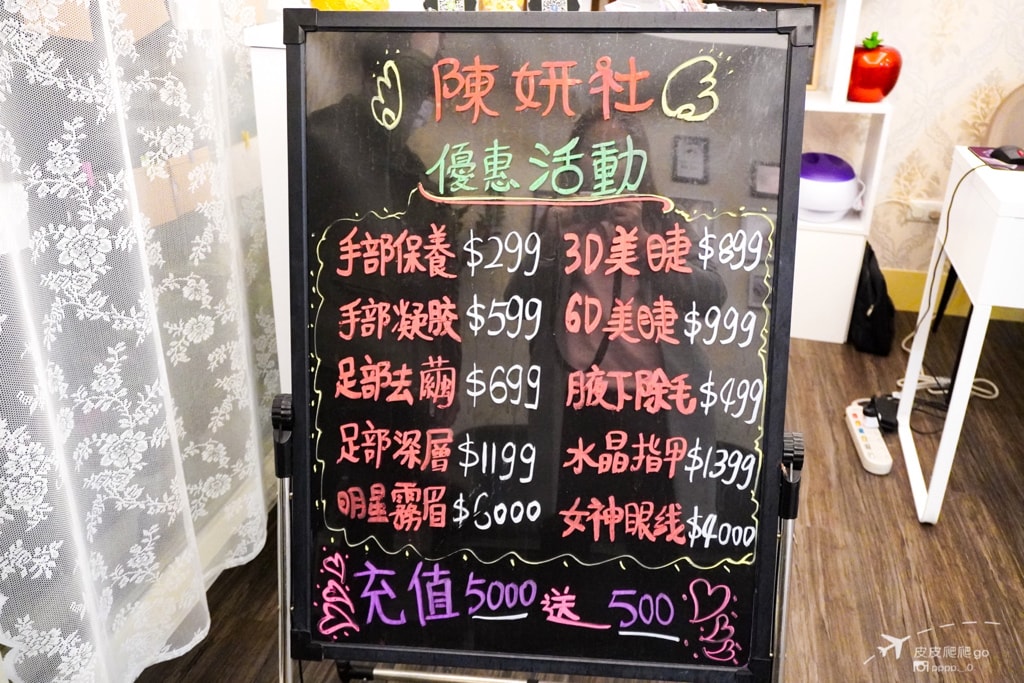 陳妍社
優惠活動
手部保養 $299 3D美睫 $899
手部凝膠 $599 6D美睫 $999
足部去繭 $699 腋下除毛 $499
足部深層 $1199 水晶指甲 $1399
明星霧眉 $6000 女神眼线 $4000
充值5000送500
皮皮爬爬go
pppp._.0